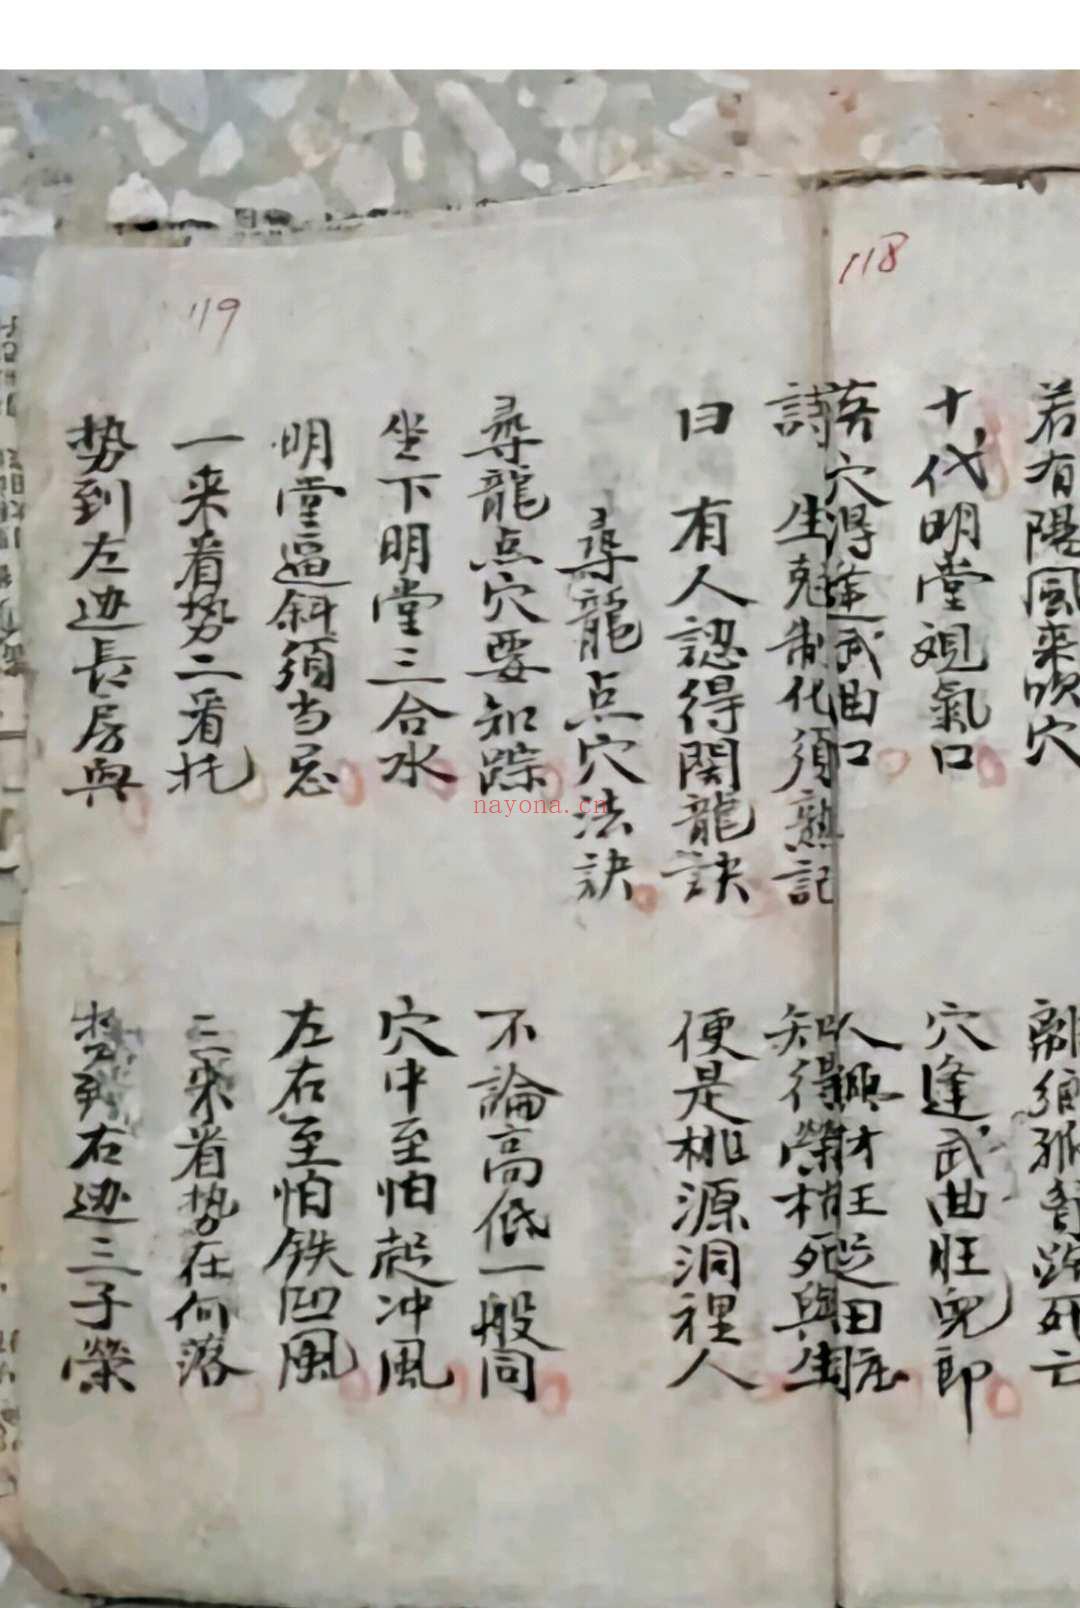 118
若有陽風来吹穴
死亡
十代明堂观氣口
穴逢武曲旺兒郎
若穴得逢武曲口
人興財旺足田庄
詩
生剋制化須熟記
知得榮枯死與生
曰
有人認得関龍訣
便是桃源洞裡人
119
尋龍点穴法訣
尋龍点穴要知踪
不論高低一般同
坐下明堂三合水
穴中至怕起冲風
明堂逼斜須当忌
左右至怕铁凹風
一来看势二看托
三来看势在何落
势到左边長房興
势到右边三子榮
nayona.cn